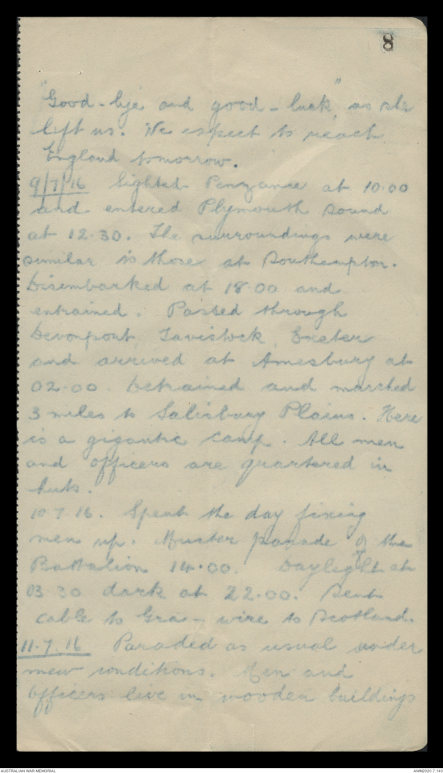 8
"Good-bye and good-luck" as she
left us. We expect to reach
England tomorrow.
9/7/16 Sighted Penzance at 10.00
and entered Plymouth Sound
at 12.30. The surroundings were
similar to those at Southampton.
Disembarked at 18.00 and
entrained. Passed through
Devonport, Tavistock, Exeter
and arrived at Amesbury at
02.00. Detrained and marched
3 miles to Salisbury Plains. Here
is a gigantic camp. All men
and officers are quartered in
huts.
10.7.16. Spent the day fixing
men up. Muster parade of the
Battalion 14.00. Daylight at
03.30 dark at 22.00. Sent
cable to Grac- wire to Scotland.
11.7.16 Paraded as usual under
new conditions. Men and
officers live in wooden buildings
AUSTRALIAN WAR MEMORIAL